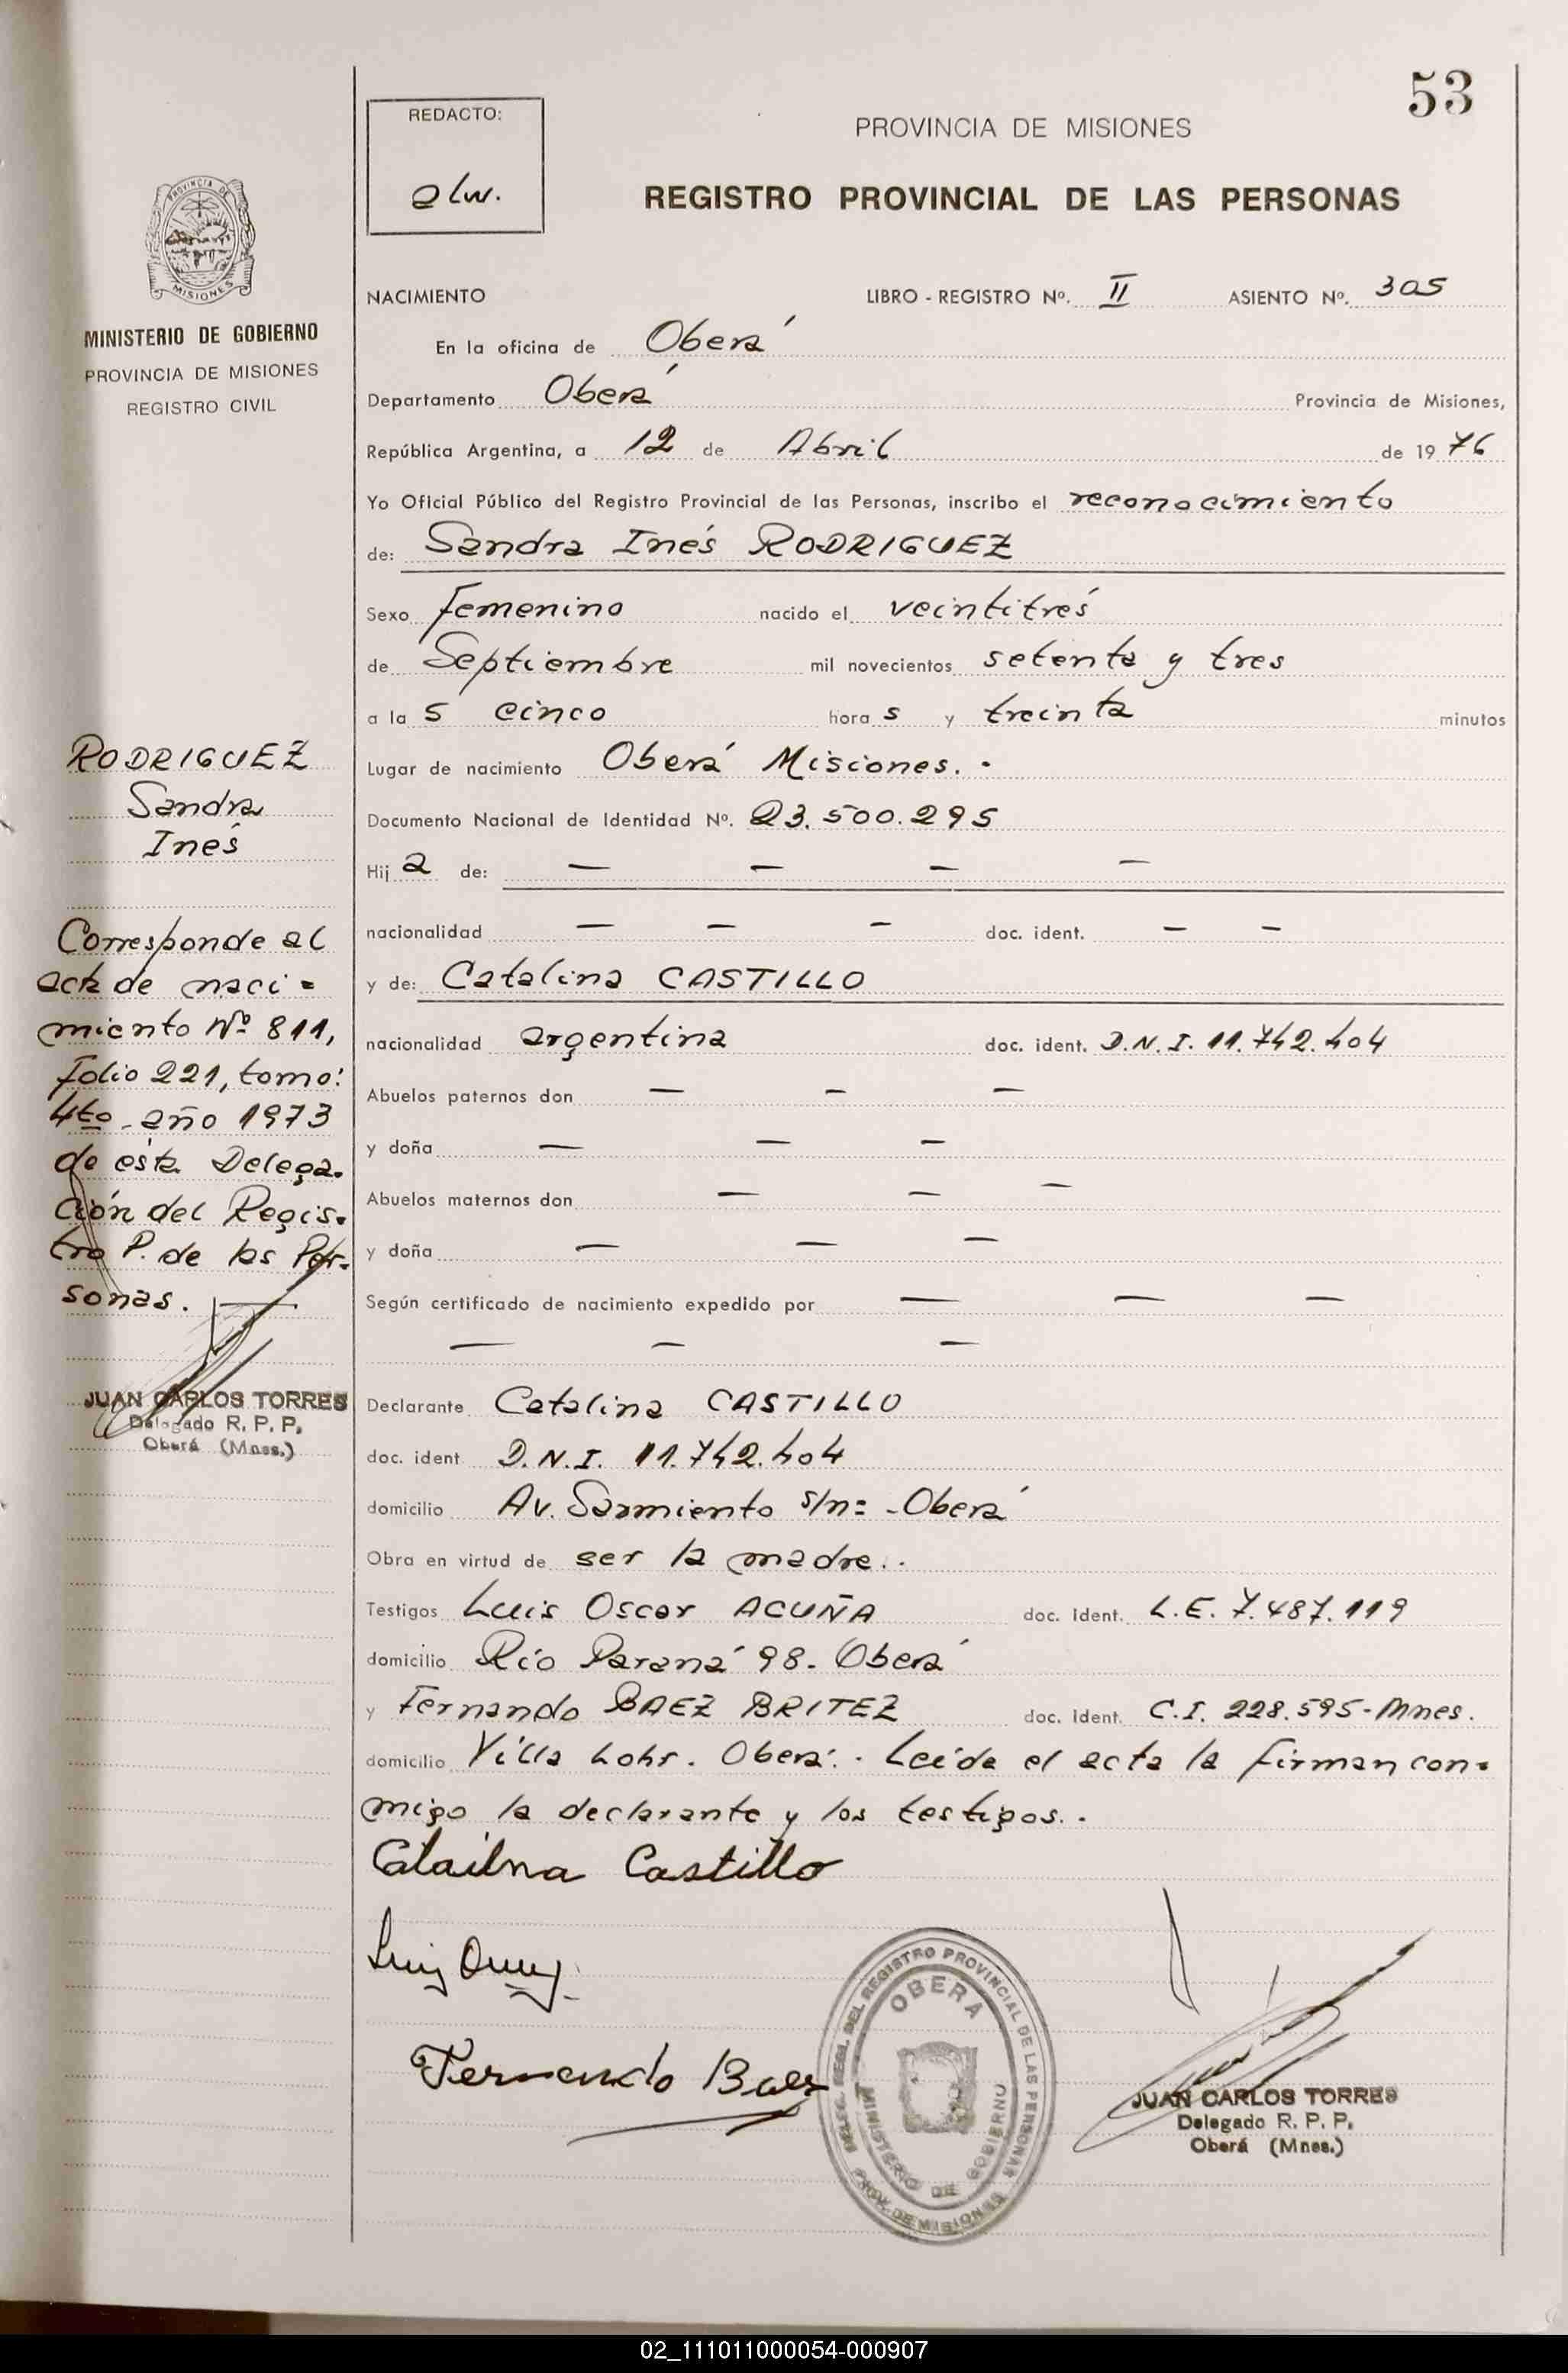 53
REDACTO:
alw.
PROVINCIA DE MISIONES
REGISTRO PROVINCIAL DE LAS PERSONAS
PROVINCIA DE
MISIONES
MINISTERIO DE GOBIERNO
PROVINCIA DE MISIONES
REGISTRO CIVIL
NACIMIENTO LIBRO - REGISTRO Nº. II ASIENTO Nº. 305
En la oficina de Oberá
Departamento Oberá Provincia de Misiones,
República Argentina, a 12 de Abril de 1976
Yo Oficial Público del Registro Provincial de las Personas, inscribo el reconocimiento
de: Sandra Inés RODRIGUEZ
Sexo femenino nacido el veintitrés
de Septiembre mil novecientos setenta y tres
a la s cinco hora s y treinta minutos
Lugar de nacimiento Oberá Misiones. -
Documento Nacional de Identidad Nº. 23.500.295
Hij a de: — — — —
nacionalidad — — — doc. ident. — —
y de: Catalina CASTILLO
nacionalidad argentina doc. ident. D.N.I. 11.742.404
Abuelos paternos don — — —
y doña — — —
Abuelos maternos don — — —
y doña — — —
Según certificado de nacimiento expedido por — — —
— — —
Declarante Catalina CASTILLO
doc. ident. D.N.I. 11.742.404
domicilio Av. Sarmiento s/n= - Oberá
Obra en virtud de ser la madre. .
Testigos Luis Oscar ACUÑA doc. ident. L.E. 7.487.119
domicilio Río Paraná 98. Oberá
y Fernando BAEZ BRITEZ doc. ident. C.I. 228.595-Mnes.
domicilio Villa Lohr. Oberá. - Leída el acta la firman con=
migo la declarante y los testigos. -
Catailna Castillo
Fernando Baez
RODRIGUEZ
Sandra
Inés
Corresponde al
acta de naci=
miento Nº 811,
folio 221, tomo:
4to - año 1973
de ésta Delega-
ción del Regis-
tro P. de las Per-
sonas.
JUAN CARLOS TORRES
Delegado R. P. P.
Oberá (Mnes.)
DELEG. REGL. DEL REGISTRO PROVINCIAL DE LAS PERSONAS
OBERA
MINISTERIO DE GOBIERNO
PROV. DE MISIONES
JUAN CARLOS TORRES
Delegado R. P. P.
Oberá (Mnes.)
02_111011000054-000907